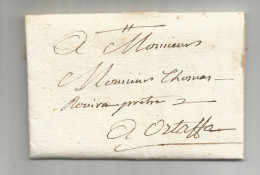 A Monsieur
Monsieur Thomas
Rovira prêtre
A Ortaffa